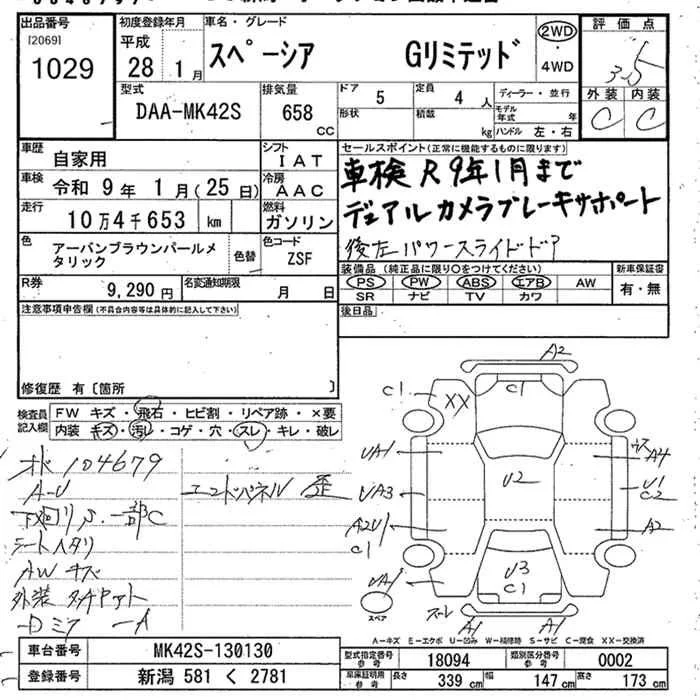 出品番号
[2069]
1029
初度登録年月
平成
28 1月
車名・グレード
スペーシア Gリミテッド
2WD
・
4WD
評価点
3.5
外装 内装
C C
型式
DAA-MK42S
排気量
658 CC
ドア
5
定員
4 人
形状
積載
kg
ディーラー・並行
モデル年式 年
ハンドル 左・右
車歴
自家用
シフト
IAT
車検
令和 9年 1月(25日)
冷房
AAC
走行
10万4千653 km
燃料
ガソリン
色
アーバンブラウンパールメタリック
色替
色コード
ZSF
R券
9,290円
名変通知期限
月 日
セールスポイント(正常に機能するものに限ります)
車検 R9年1月まで
デュアルカメラブレーキサポート
後左パワースライドドア
装備品(純正品に限り○をつけてください)
新車保証書
PS PW ABS エアB AW
有・無
SR ナビ TV カワ
後日品
注意事項申告欄(不具合内容等は具体的に記入して下さい)
修復歴 有〔箇所 〕
検査員記入欄
FW キズ・飛石・ヒビ割・リペア跡・×要
内装 キズ・汚レ・コゲ・穴・スレ・キレ・破レ
メ 104679
A-U
エンドパネル 歪
下回りS.一部C
シートヘタリ
AWキズ
外装 タッチアト
A2
C1
C1
XX
UA1
A4
U2
UA3
U1
C2
A2U1
C1
A2
U3
C1
UA1
スペア
スレ
A1
A1
A-キズ E-エクボ U-凹み W-補修跡 S-サビ C-腐食 XX-交換済
車台番号
MK42S-130130
登録番号
新潟 581 く 2781
型式指定番号
参考
18094
類別区分番号
参考
0002
車庫証明用
参考
長さ 339 cm
幅 147 cm
高さ 173 cm